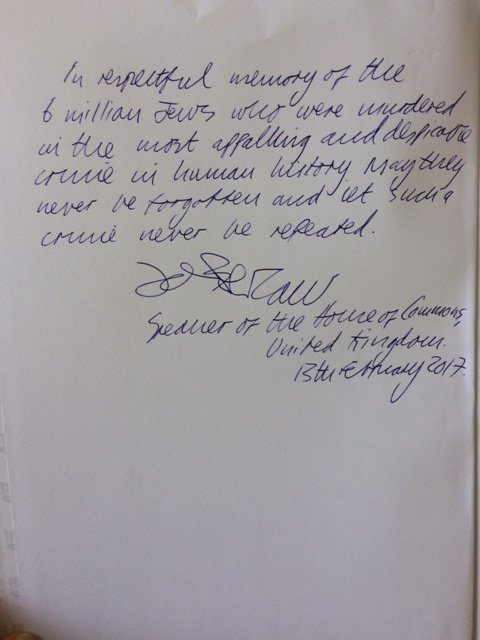 In respectful memory of the
6 million Jews who were murdered
in the most appalling and despicable
crime in human history May they
never be forgotten and let such a
crime never be repeated.
Speaker of the House of Commons,
United Kingdom.
13th February 2017.